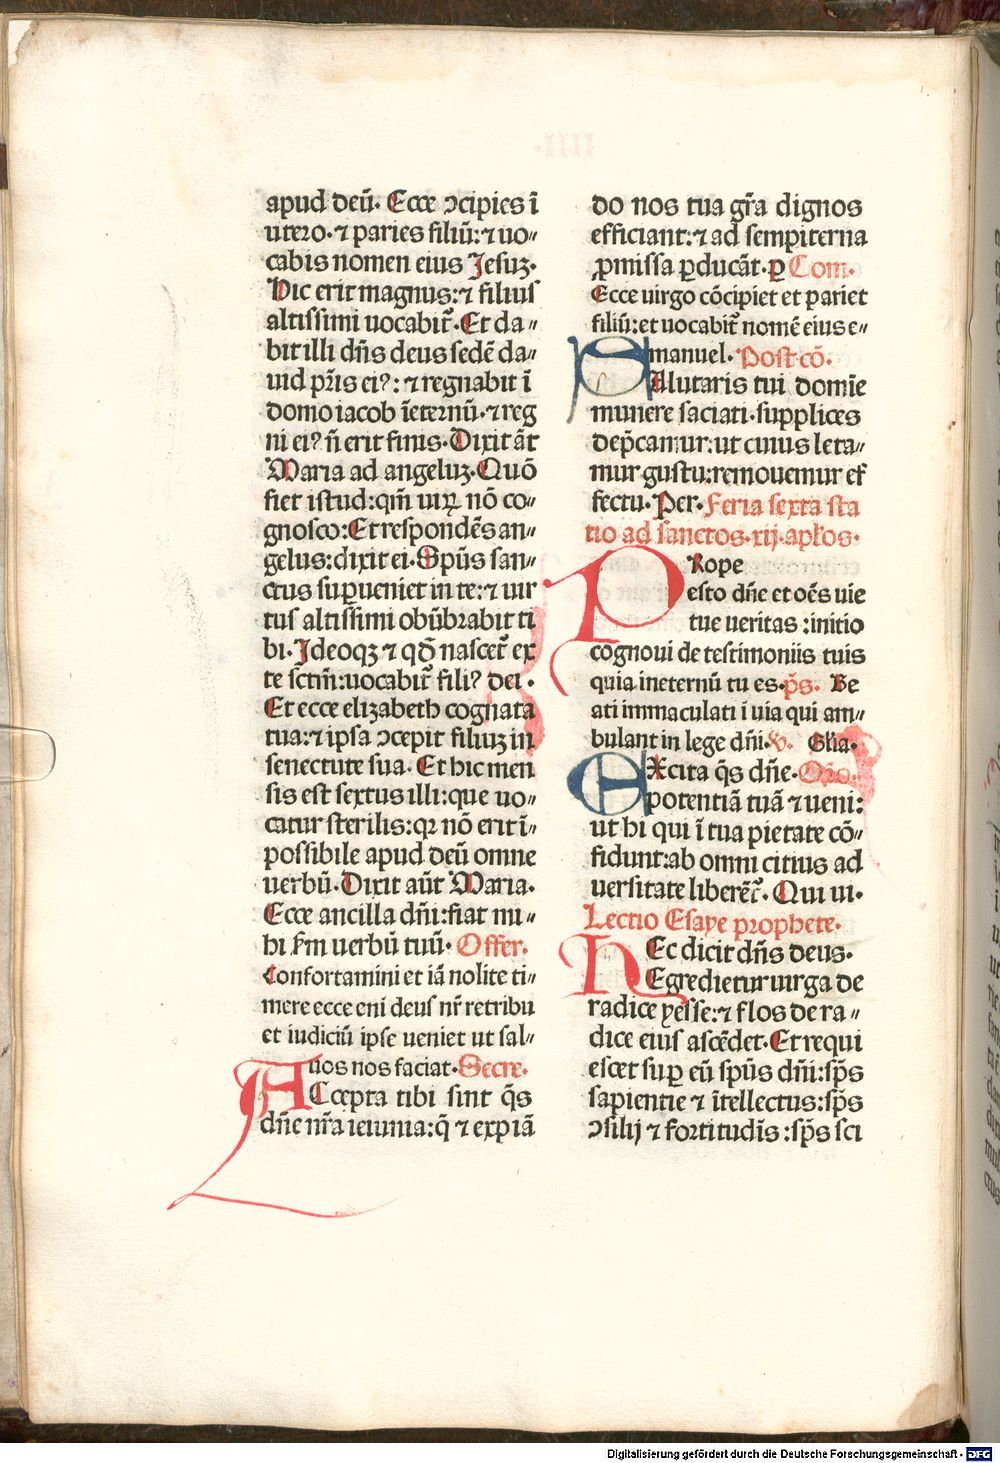 apud deū. Ecce ↄcipies ī
utero. ⁊ paries filiū: ⁊ uo⸗
cabis nomen eius Jesuꝫ.
Hic erit magnus: ⁊ filius
altissimi uocabit᷑. Et da⸗
bit illi dn̄s deus sedē da⸗
uid pr̄is eiꝰ: ⁊ regnabit ī
domo iacob īeternū. ⁊ reg
ni eiꝰ n̄ erit finis. Dixit āt
Maria ad angeluꝫ. Quō
fiet istud: qm̄ uiꝝ nō co⸗
gnosco: Et respondēs an⸗
gelus: dixit ei. Spūs san⸗
ctus suꝑueniet in te: ⁊ uir
tus altissimi obūbrabit ti
bi. Jdeoqꝫ ⁊ qd̄ nascet᷑ ex
te sctm̄: uocabit᷑ filiꝰ dei.
Et ecce elizabeth cognata
tua: ⁊ ipsa ↄcepit filiuꝫ in
senectute sua. Et hic men
sis est sextus illi: que uo⸗
catur sterilis: qꝛ nō erit ī⸗
possibile apud deū omne
uerbū. Dixit aūt Maria.
Ecce ancilla dn̄i: fiat mi⸗
hi s̄m uerbū tuū. Offer.
Confortamini et iā nolite ti⸗
mere ecce eni deus nr̄ retribu
et iudiciū ipse ueniet ut sal⸗
uos nos faciat. Secre.
ACcepta tibi sint q̄s
dn̄e nr̄a ieiunia: q̄ ⁊ expiā
do nos tua gr̄a dignos
efficiant: ⁊ ad sempiterna
ꝓmissa ꝑducāt. ꝑ Com.
Ecce uirgo cōcipiet et pariet
filiū: et uocabit᷑ nomē eius e⸗
manuel. Post cō.
SAlutaris tui domīe
munere saciati. supplices
dep̄camur: ut cuius leta⸗
mur gustu: remouemur ef
fectu. Per. Feria sexta sta
tio ad sanctos. xij. apłos.
PRope
esto dn̄e et oēs uie
tue ueritas: initio
cognoui de testimoniis tuis
quia ineternū tu es. p̄s. Be
ati immaculati ī uia qui am⸗
bulant in lege dn̄i. V. Glīa.
EXcita q̄s dn̄e. Orō.
potentiā tuā ⁊ ueni:
ut hi qui ī tua pietate cō⸗
fidunt: ab omni citius ad
uersitate liberēt᷑. Qui ui.
Lectio Esaye prophete.
HEc dicit dn̄s deus.
Egredietur uirga de
radice yesse: ⁊ flos de ra⸗
dice eius ascēdet. Et requi
escet suꝑ eū spūs dn̄i: sp̄s
sapientie ⁊ ītellectus: sp̄s
ↄsilij ⁊ fortitudīs: sp̄s sci
Digitalisierung gefördert durch die Deutsche Forschungsgemeinschaft - DFG